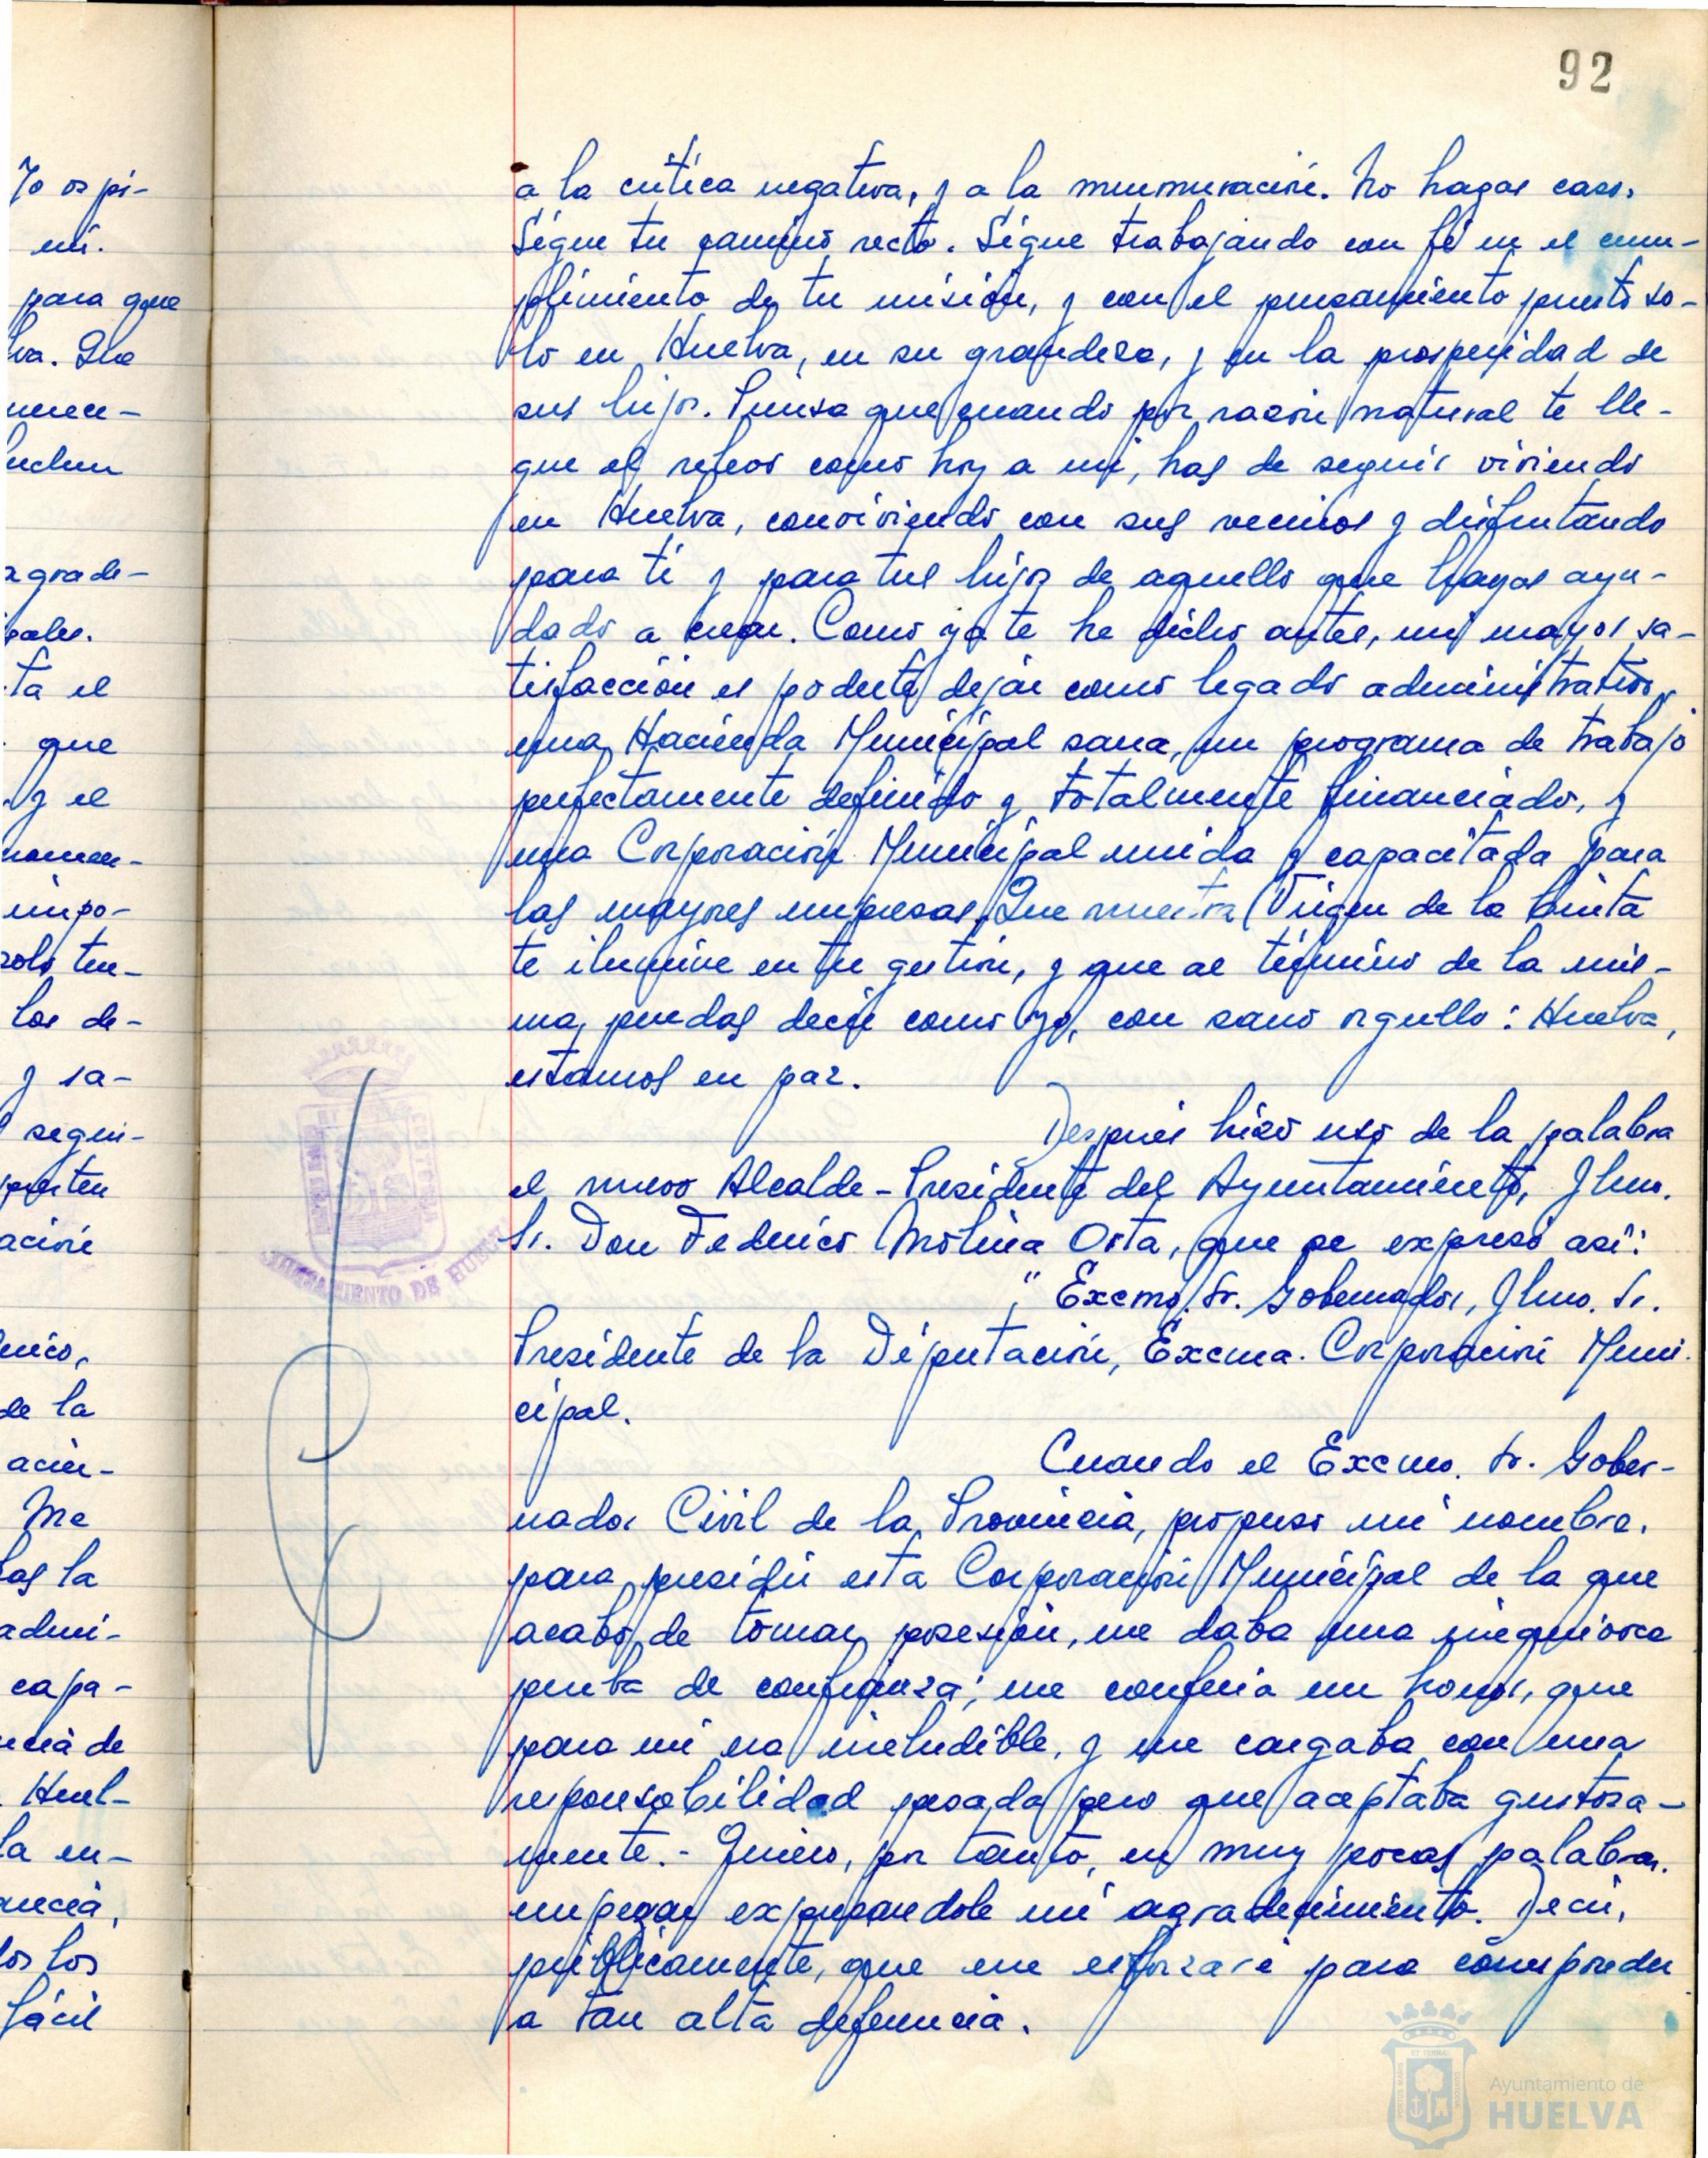 92
a la crítica negativa, y a la murmuración. No hagas caso.
Sigue tu camino recto. Sigue trabajando con fé en el cum-
plimiento de tu misión, y con el pensamiento puesto so-
lo en Huelva, en su grandeza, y en la prosperidad de
sus hijos. Piensa que cuando por razón natural te lle-
gue el relevo como hoy a mi, has de seguir viviendo
en Huelva, conviviendo con sus vecinos y disfrutando
para ti y para tus hijos de aquello que hayas ayu-
dado a crear. Como ya te he dicho antes, mi mayor sa-
tisfacción es poderte dejar como legado administrativo,
una Hacienda Municipal sana, un programa de trabajo
perfectamente definido y totalmente financiado, y
una Corporación Municipal unida y capacitada para
las mayores empresas. Que nuestra Virgen de la Cinta
te ilumine en tu gestión, y que al término de la mis-
ma, puedas decir como yo, con sano orgullo: Huelva,
estamos en paz.
Después hizo uso de la palabra
el nuevo Alcalde-Presidente del Ayuntamiento, Ilmo.
Sr. Don Federico Molina Orta, que se expresó así:
" Excmo. Sr. Gobernador, Ilmo. Sr.
Presidente de la Diputación, Excma. Corporación Muni-
cipal.
Cuando el Excmo. Sr. Gober-
nador Civil de la Provincia, propuso mi nombre,
para presidir esta Corporación Municipal de la que
acabo de tomar posesión, me daba una inequívoca
prueba de confianza; me confería un honor, que
para mi era ineludible, y me cargaba con una
responsabilidad pesada pero que aceptaba gustosa-
mente.- Quiero, por tanto, en muy pocas palabras,
empezar expresandole mi agradecimiento. Decir,
públicamente, que me esforzaré para corresponder
a tan alta deferencia.
Yo os pi-
mí.
para que
lva. Que
merec-
luchen
agrade-
pales.
ta el
que
y el
momen-
impo-
solo ten-
los de-
y sa-
segui-
puesten
ación
nico,
de la
ación-
Me
las la
admi-
capa-
encia de
Huel-
la en-
los los
fácil
AYUNTAMIENTO DE HUELVA
Ayuntamiento de
HUELVA